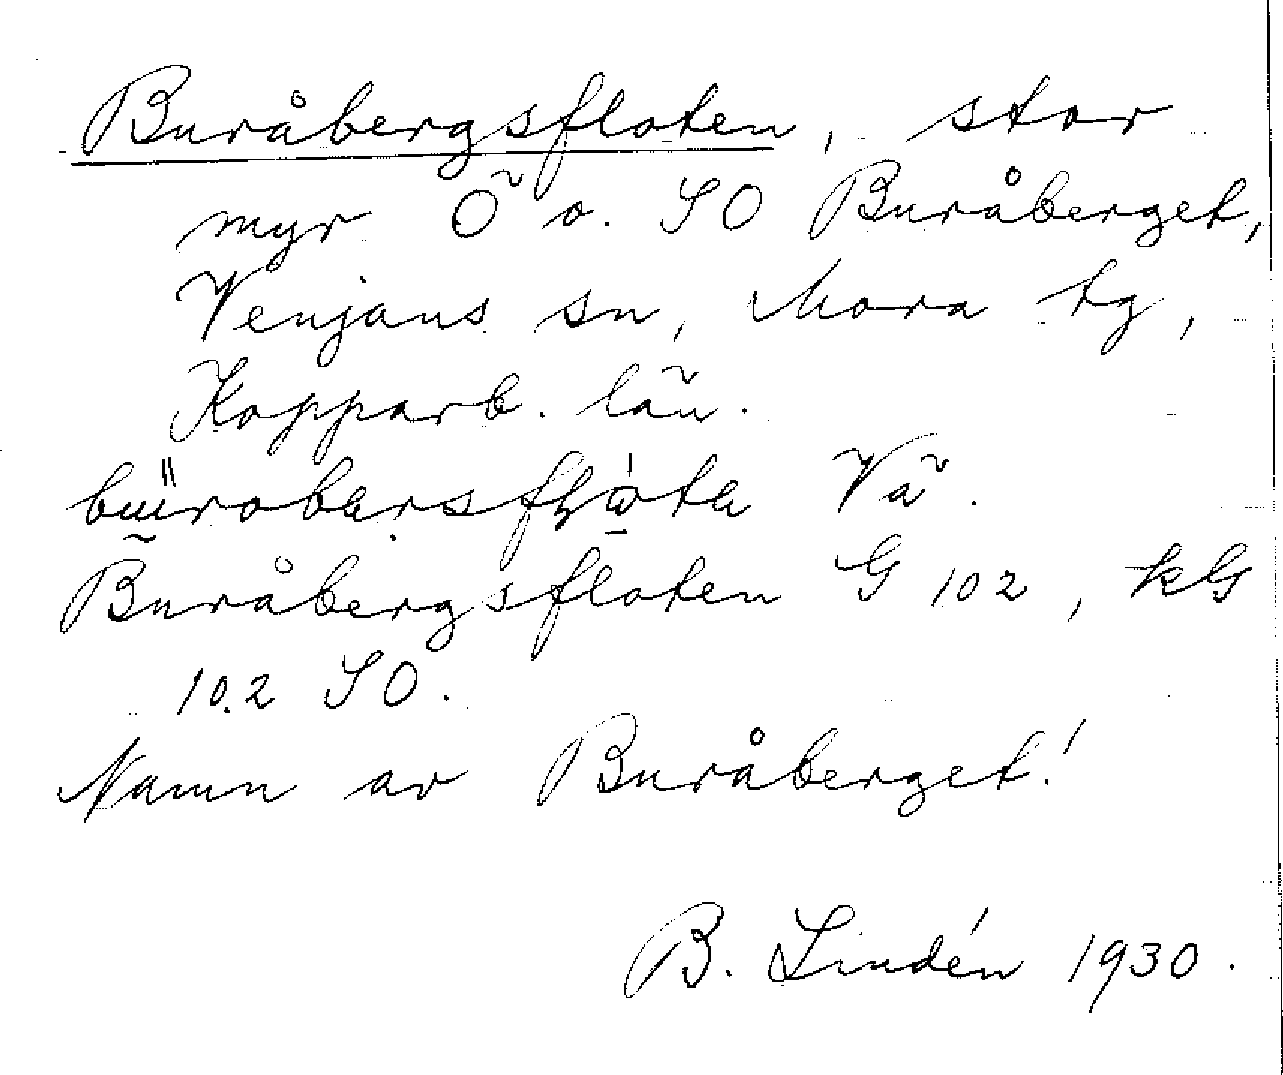 Buråbergsfloten, stor
myr Ö o. SO Buråberget,
Venjans sn, Mora tg,
Kopparb. län.
Vä.
Buråbergsfloten G 102, kG
10.2 SO.
Namn av Buråberget!
B. Lindén 1930.